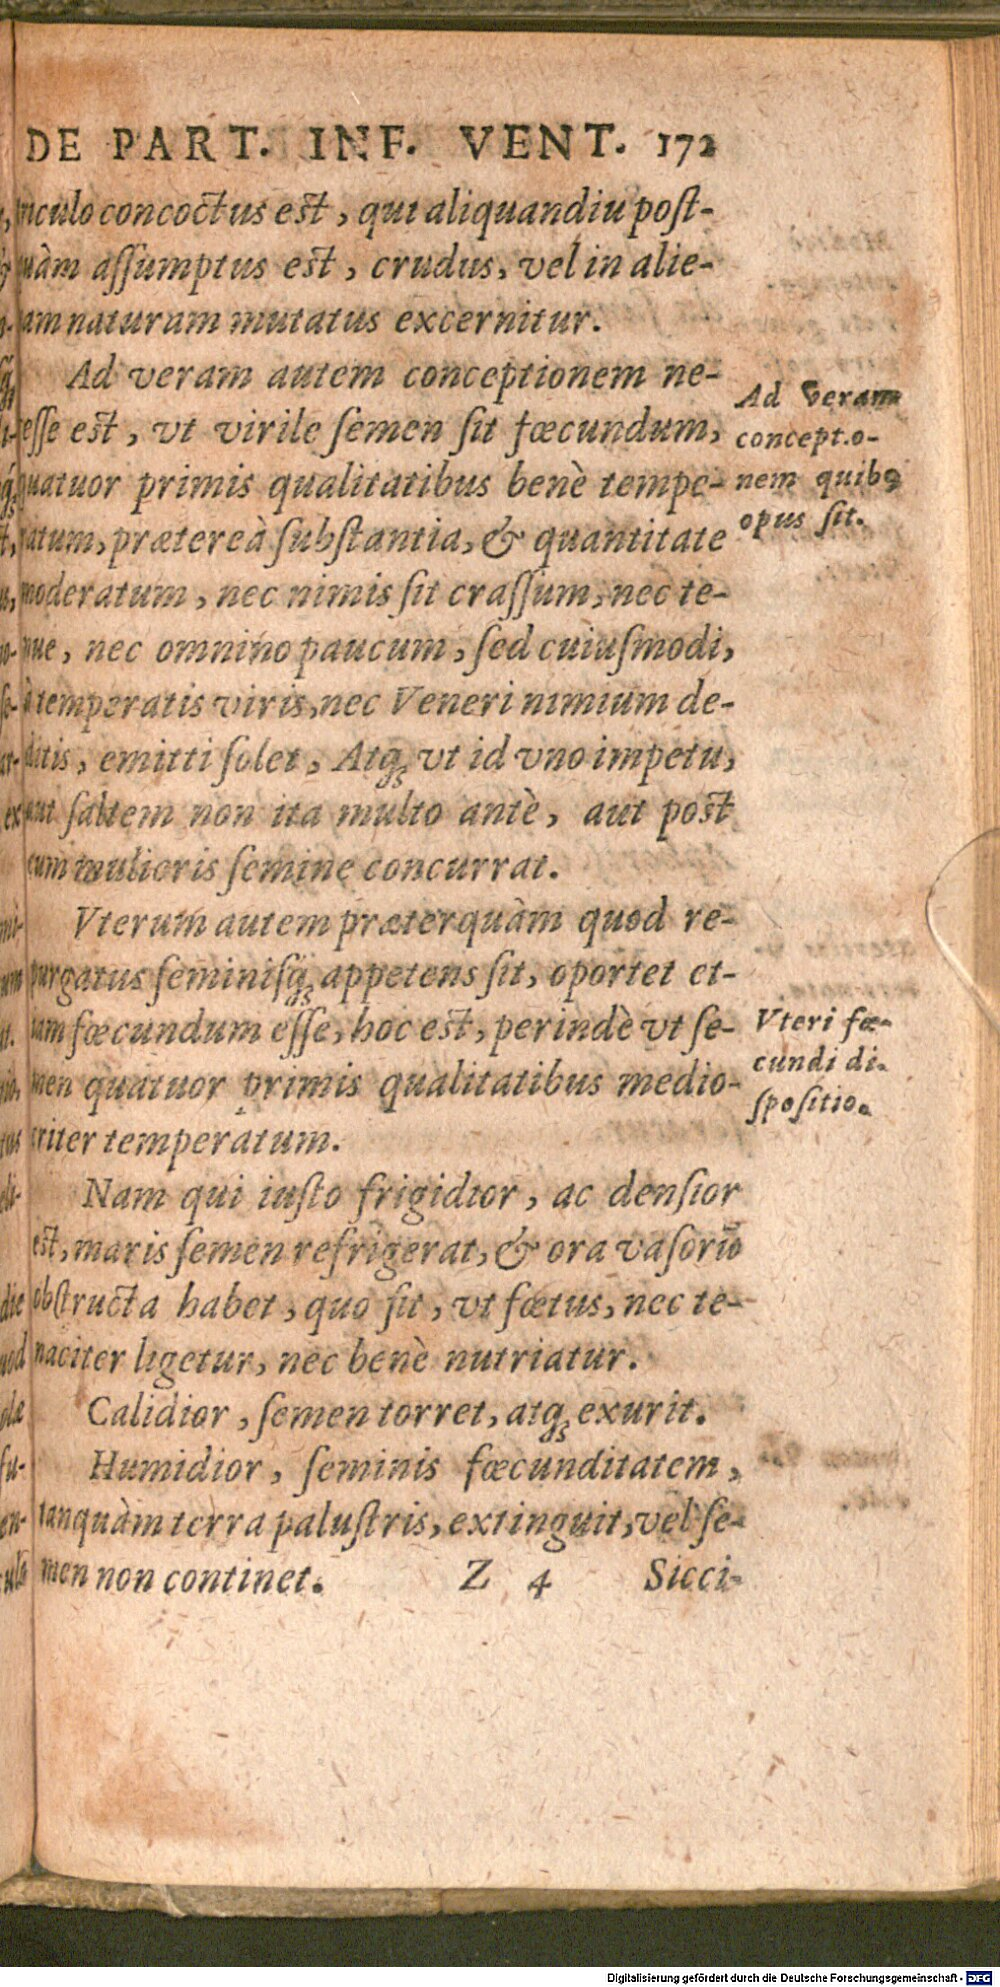 DE PART. INF. VENT. 172
concoctus est, qui aliquandiu post-
quàm assumptus est, crudus, vel in alie-
nam naturam mutatus excernitur.
Ad veram autem conceptionem ne-
cesse est, vt virile semen sit fœcundum,
quatuor primis qualitatibus benè tempe-
ratum, prætereà substantia, & quantitate
moderatum, nec nimis sit crassum, nec te-
nue, nec omnino paucum, sed cuiusmodi,
à temperatis viris, nec Veneri nimium de-
ditis, emitti solet, Atq; vt id vno impetu,
aut saltem non ita multo antè, aut post
cum mulieris semine concurrat.
Vterum autem præterquàm quod re-
purgatus seminisq; appetens sit, oportet et-
iam fœcundum esse, hoc est, perindè vt se-
men quatuor primis qualitatibus medio-
criter temperatum.
Nam qui iusto frigidior, ac densior
est, maris semen refrigerat, & ora vasorū
obstructa habet, quo fit, vt fœtus, nec te-
naciter ligetur, nec benè nutriatur.
Calidior, semen torret, atq; exurit.
Humidior, seminis fœcunditatem,
tanquàm terra palustris, extinguit, vel se-
men non continet. Z 4 Sicci-
Ad veram
concept.o-
nem quibꝰ
opus sit.
Vteri fœ-
cundi di-
spositio.
Digitalisierung gefördert durch die Deutsche Forschungsgemeinschaft - DFG